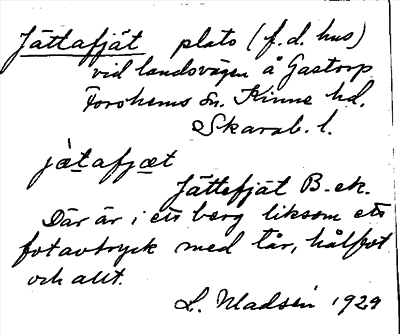 Jättafjät plats (f.d. hus)
vid landsvägen å Gastorp
Forshems sn. Kinne hd.
Skarab. l.
jätafjæt
Jättefjät B. ek.
Där är i ett berg liksom ett
fotavtryck med tår, hålfot
och allt.
L. Madsén 1929